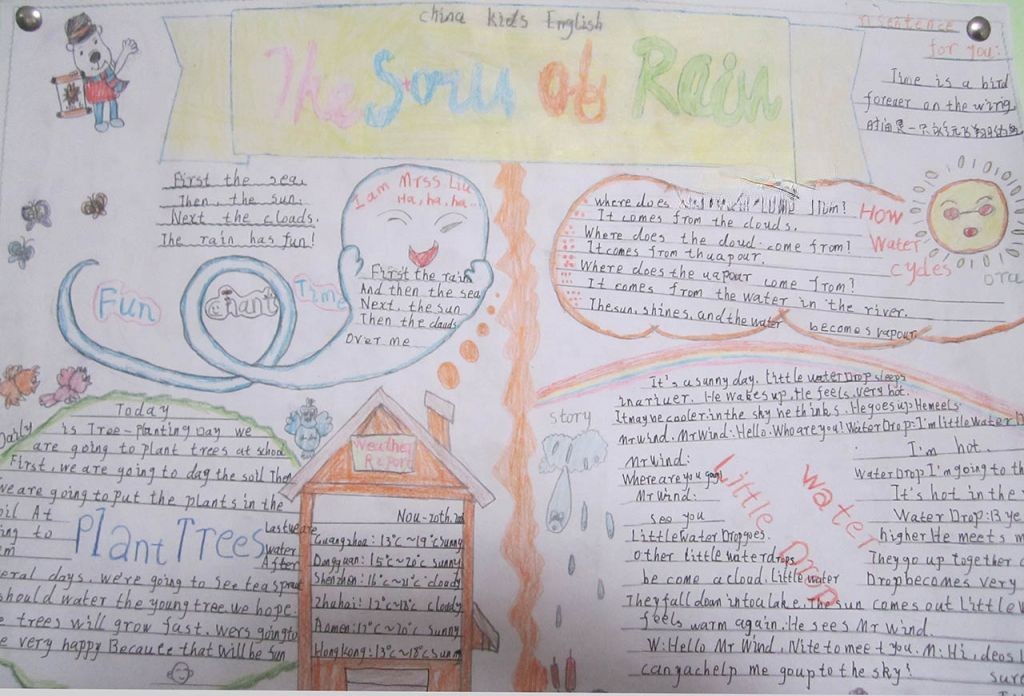 china kids English
The Story of Rain
A sentence
for you:
Time is a bird
forever on the wing
First the sea.
Then, the sun.
Next the cloads.
The rain has fun!
I am Mrss Liu
Ha, ha, ha...
First the rain
And then the sea
Next, the sun
Then the clauds
Over me
Fun
chant
Time
where does
It comes from the clouds.
Where does the cloud come from?
It comes from
Where does the uapour come from?
It comes from the water in the river.
The sun, shines, and the water becomes vapour
How
Water
Cycles
Today
Daily is Tree-planting Day we
are going to plant trees at school
First, we are going to dag the soil Then
we are going to put the plants in the
oil At
Plant Trees
Last we are
water
After
eral days, we're going to see
should water the young tree. we hope.
e trees will grow fast. wers going to
e very happy Because that will be sun
Weather
Report
Nou-20th.
Guangzhou: 13°c ~19°c sunny
Dongguan: 15°c~20°c sunny
Shenzhen: 16°c~21°c cloudy
Zhuhai: 12°c~18°c cloddy
Aomen: 17°c ~20°c sunny
Hongkong: 13°c~18°c sunny
story
It's a sunny day. Little water Drop sleeps
in a riuer. He wakes up. He feels very hot.
It may ve cooler in the sky he thinks. He goes up: He meels
mr wind. Mr Wind: Hello. Who are you! Water Drop: I'm little water D
I'm hot.
Mr Wind:
Where are you going
Water Drop I'm going to th
Mr Wind:
It's hot in the
see you
Water Drop:
Little Water Drop goes.
higher He meets m
other little waterdrops
They go up together
be come a cloud. Little water
Drop becomes very
Little
Water
Drop
They fall doan into a lake. The sun comes out Little W
feels warm again. He sees Mr Wind.
W: Hello Mr Wind, Nite to mee t you. M: Hi,
can ya help me go up to the sky!